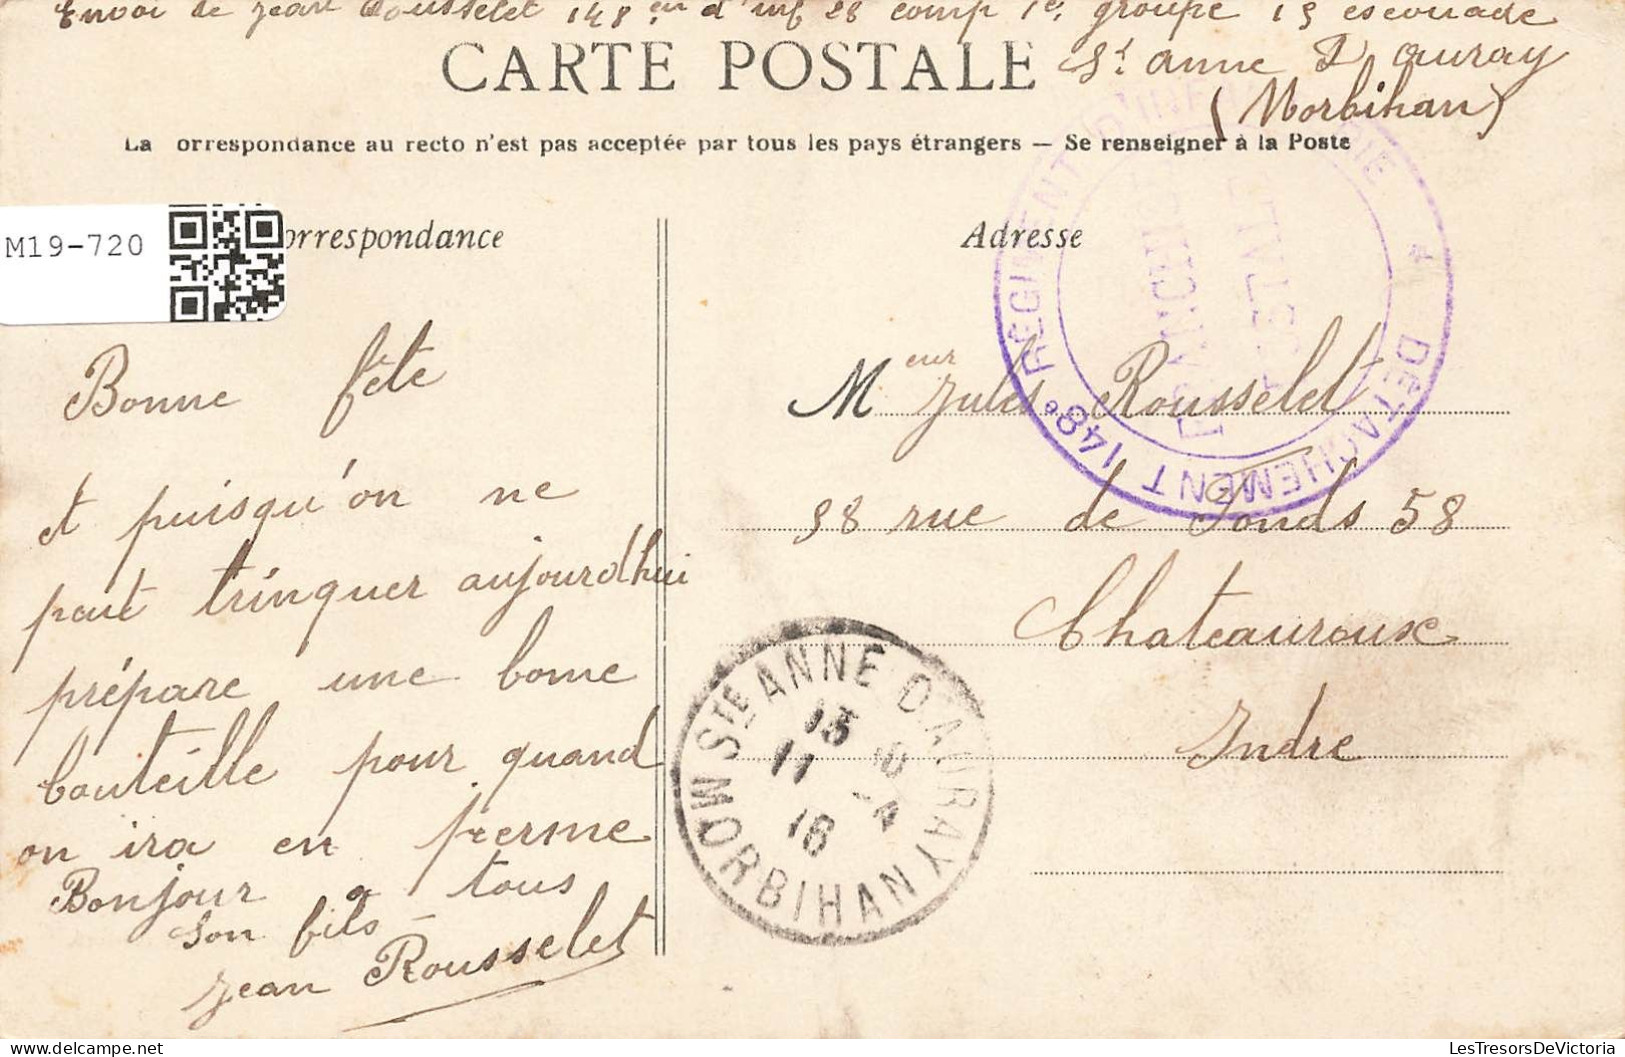 Envoi de Jean Rousselet 148 em d'inf 28 comp 1e, groupe 15 escouade
CARTE POSTALE
St anne D auray
(Morbihan)
La orrespondance au recto n'est pas acceptée par tous les pays étrangers — Se renseigner à la Poste
M19-720
orrespondance
Adresse
DÉTACHEMENT 148e RÉGIMENT D'INFANTERIE *
Bonne fête
et puisqu'on ne
peut trinquer aujourdhui
prépare une bonne
bouteille pour quand
on ira en perme
Bonjour a tous
Son fils -
Jean Rousselet
Meur Jules Rousselet
58 rue de Fonds 58
Chateauroux
Indre
STE ANNE D'AURAY
MORBIHAN
11 -4
16
LesTresorsDeVictoria
https://www.delcampe.net